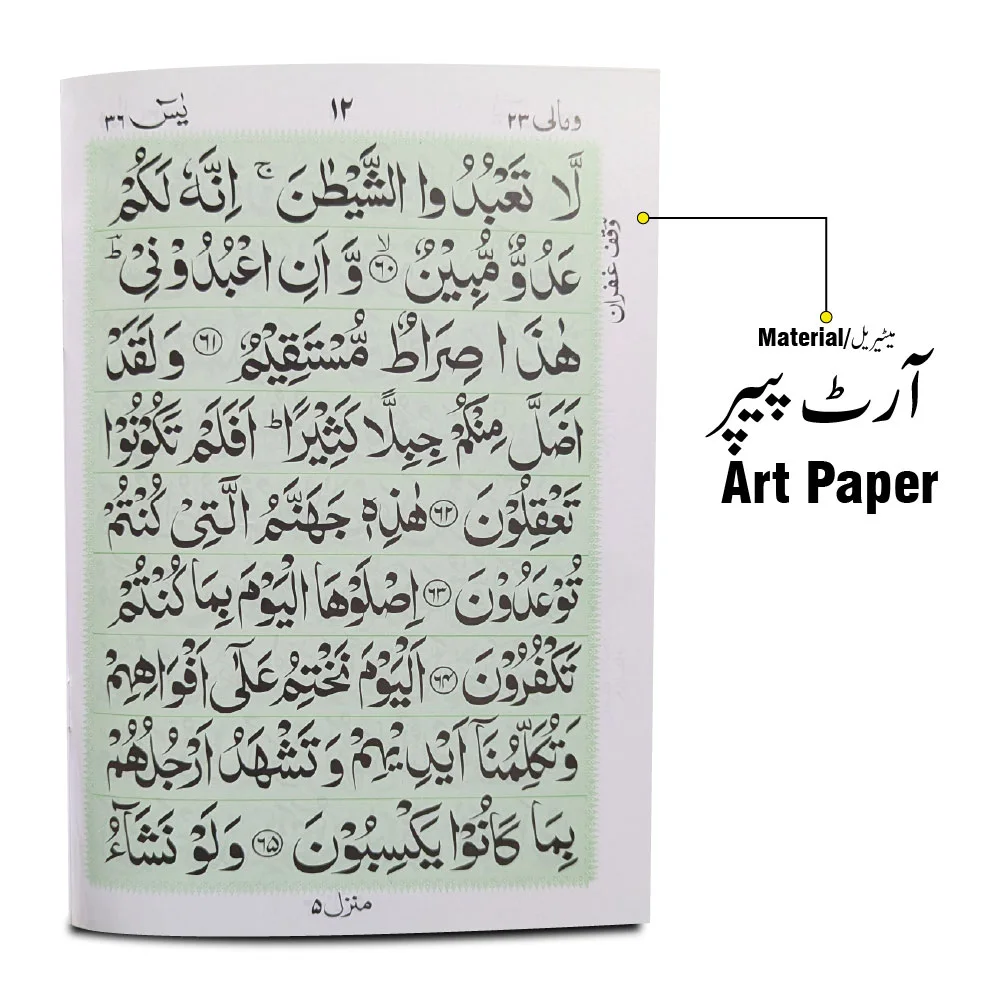 ومالی ٢٣ ١٢ يٰسٓ ٣٦
لَّا تَعْبُدُوا الشَّيْطٰنَ ۚ اِنَّهٗ لَكُمْ
عَدُوٌّ مُّبِيْنٌ ۙ﴿٦٠﴾ وَّ اَنِ اعْبُدُوْنِیْ ؕؔ
هٰذَا صِرَاطٌ مُّسْتَقِيْمٌ ﴿٦١﴾ وَلَقَدْ
اَضَلَّ مِنْكُمْ جِبِلًّا كَثِيْرًا ؕ اَفَلَمْ تَكُوْنُوْا
تَعْقِلُوْنَ ﴿٦٢﴾ هٰذِهٖ جَهَنَّمُ الَّتِیْ كُنْتُمْ
تُوْعَدُوْنَ ﴿٦٣﴾ اِصْلَوْهَا الْيَوْمَ بِمَا كُنْتُمْ
تَكْفُرُوْنَ ﴿٦٤﴾ اَلْيَوْمَ نَخْتِمُ عَلٰٓی اَفْوَاهِهِمْ
وَتُكَلِّمُنَاۤ اَيْدِيْهِمْ وَتَشْهَدُ اَرْجُلُهُمْ
بِمَا كَانُوْا يَكْسِبُوْنَ ﴿٦٥﴾ وَلَوْ نَشَآءُ
منزل ۵
وقف غفران
Material/میٹیریل
آرٹ پیپر
Art Paper